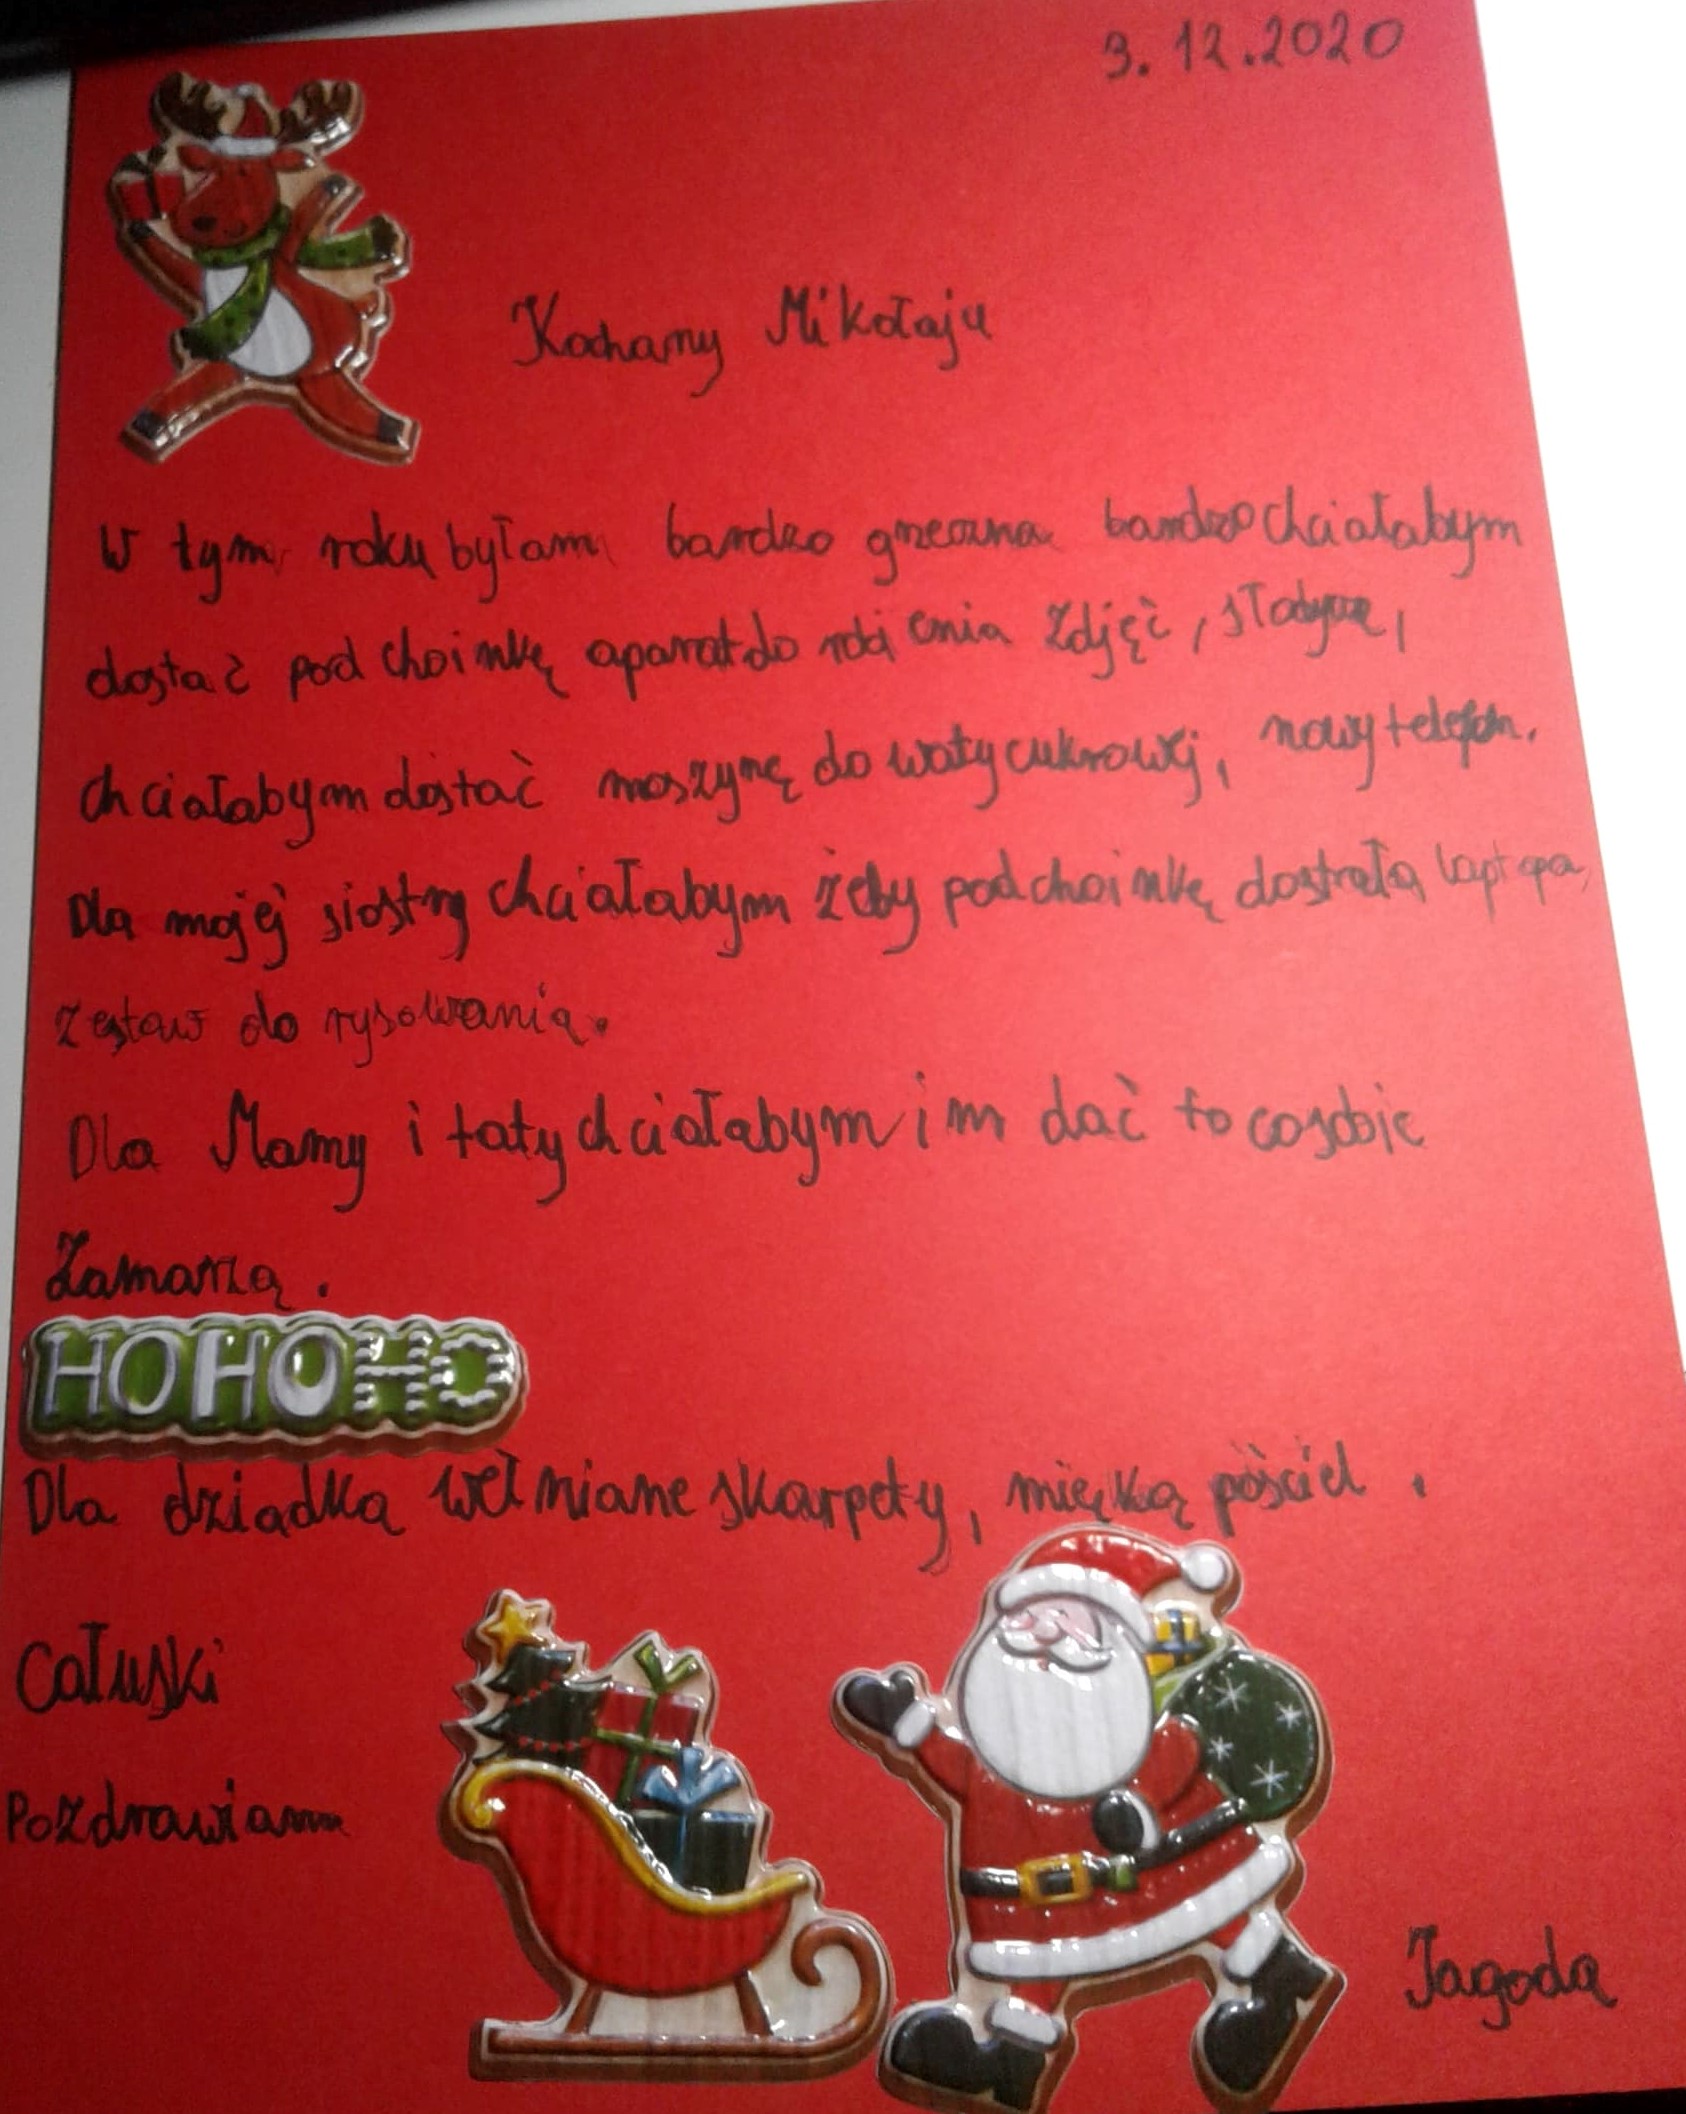 3.12.2020
Kochany Mikołaju
W tym roku byłam bardzo grzeczna bardzo chciałabym
dostać pod choinkę aparat do robienia zdjęć, słodycze,
chciałabym dostać maszynę do waty cukrowej, nowy telefon.
Dla mojej siostry chciałabym żeby pod choinkę dostała laptopa,
zestaw do rysowania.
Dla Mamy i taty chciałabym im dać to co sobie
Zamarzą.
HOHOHO
Dla dziadka wełniane skarpety, miękką pościel.
Całuski
Pozdrawiam
Jagoda